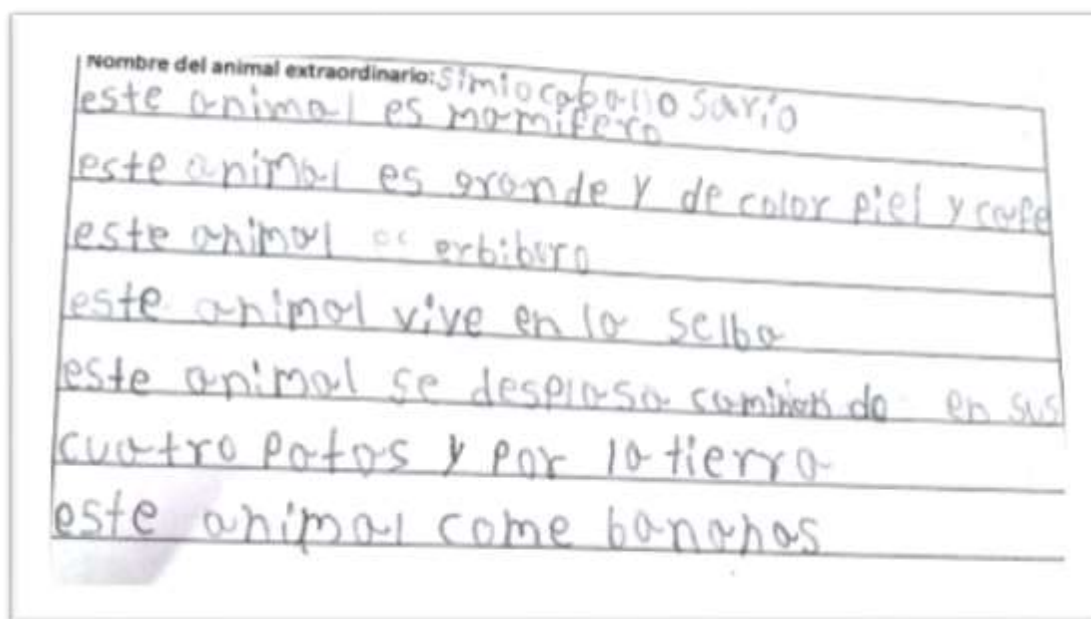 Nombre del animal extraordinario: Simiocaballosario
este animal es mamifero
este animal es grande y de color piel y cafe
este animal es erbiburo
este animal vive en la selba
este animal se desplasa caminando en sus
cuatro patas y por la tierra
este animal come bananas